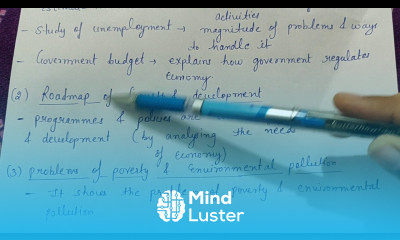 activities
- Study of unemployment → magnitude of problems & ways
to handle it
- Government budget → explains how government regulates
economy
(2) Roadmap of & development
- programmes & policies are
& development (by analysing the need
of economy)
(3) problems of poverty & Environmental pollution
- It shows the of poverty & environmental
pollution
Mind
Luster